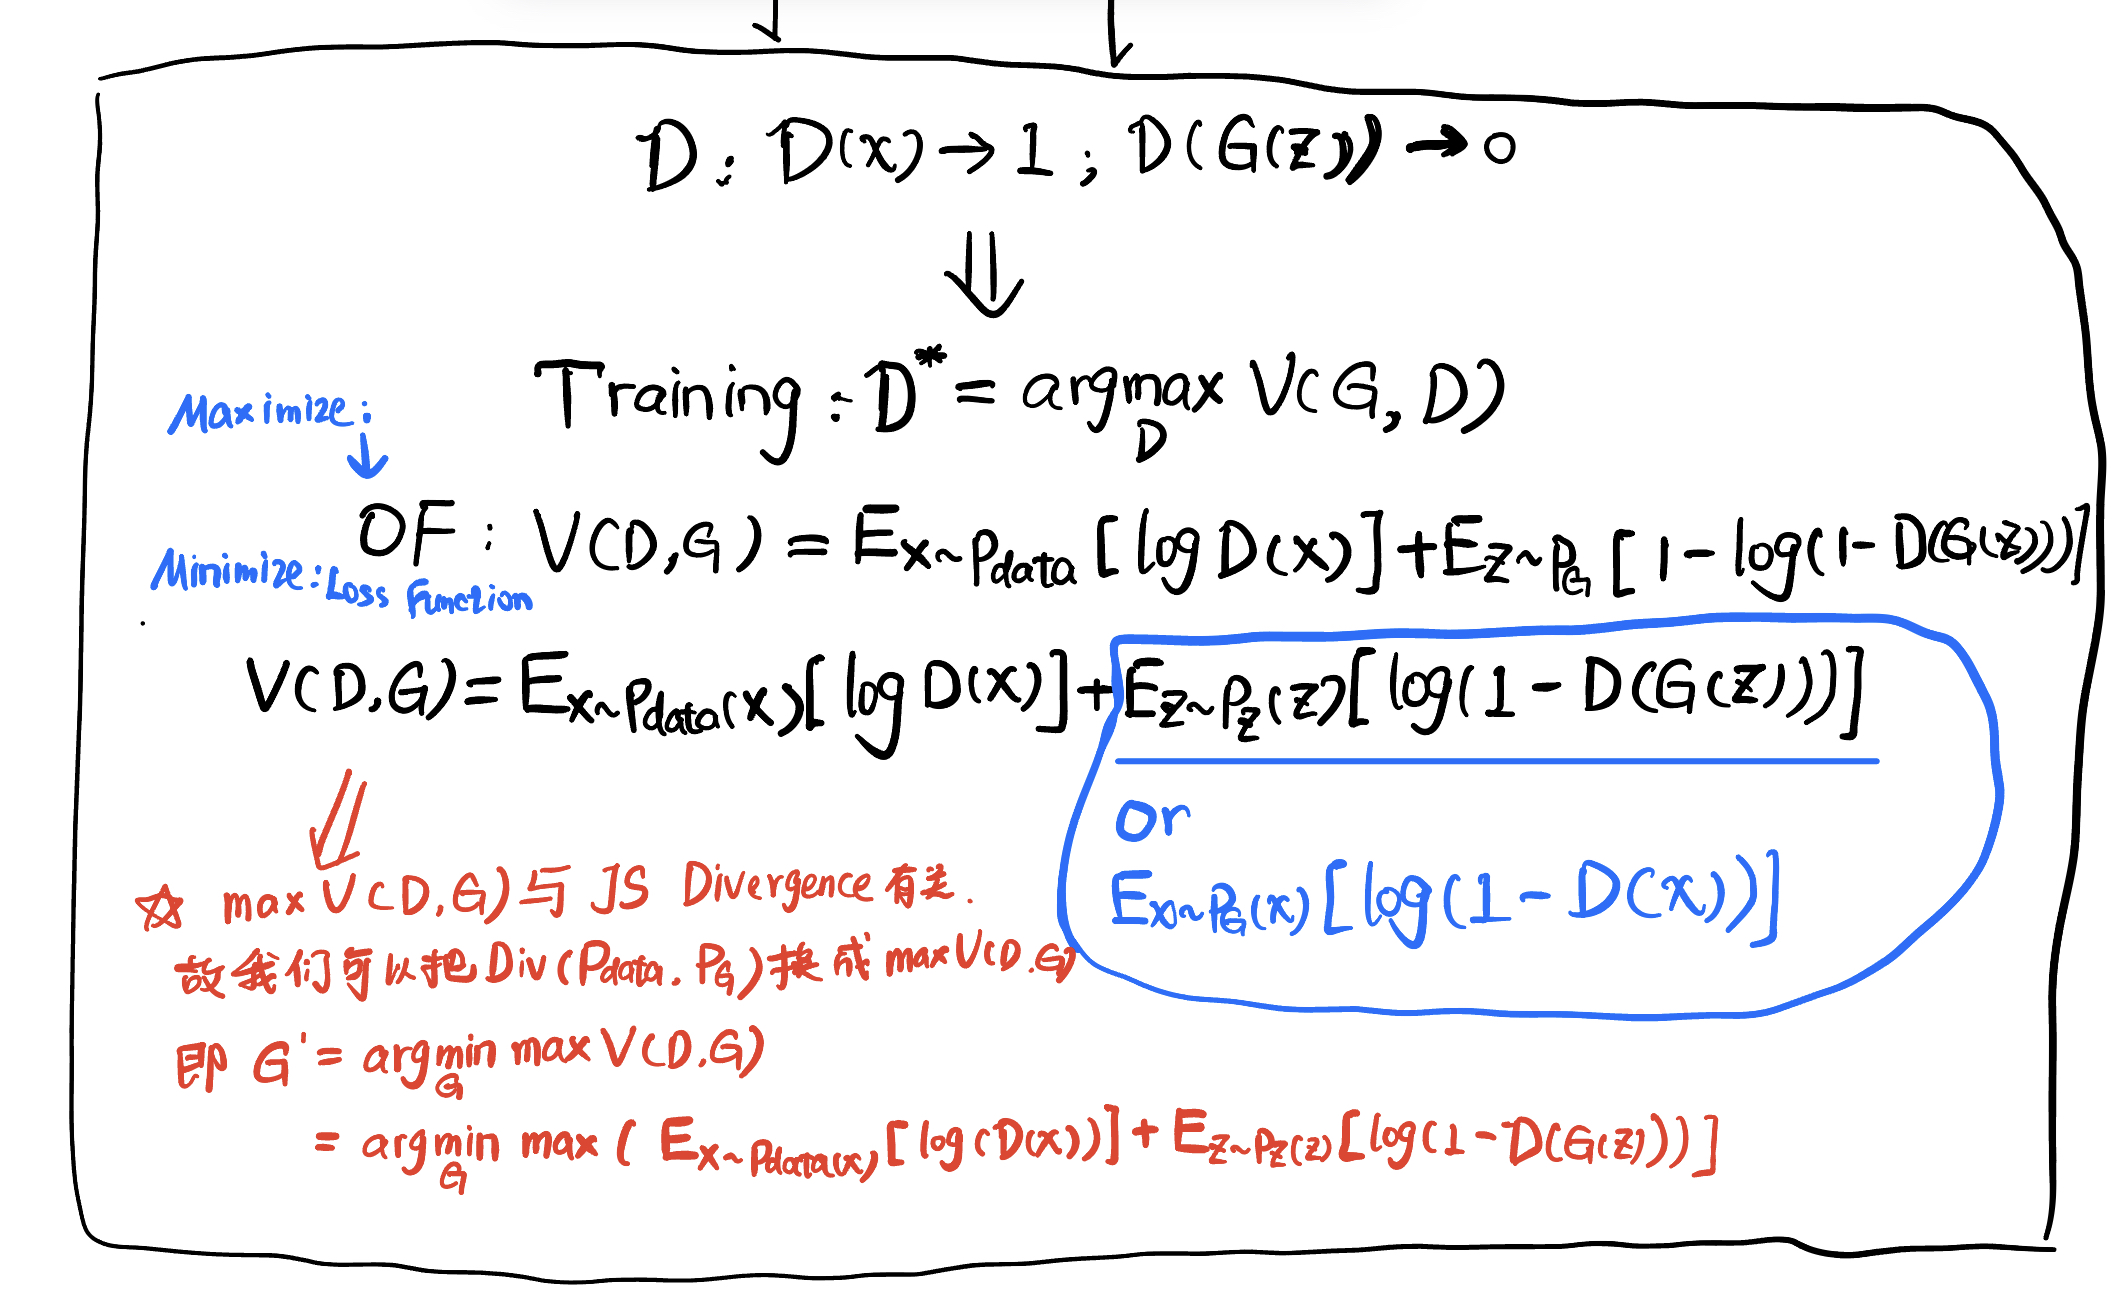 D: D(x) → 1 ; D(G(z)) → 0
⇓
Training: D* = argmax_D V(G, D)
Maximize:
↓
OF: V(D,G) = E_{x~Pdata} [log D(x)] + E_{z~P_G} [1 - log(1 - D(G(z)))]
Minimize: Loss Function
V(D,G) = E_{x~Pdata(x)} [log D(x)] + E_{z~P_z(z)} [log(1 - D(G(z)))]
or
E_{x~P_G(x)} [log(1 - D(x))]
☆ max V(D,G) 与 JS Divergence 有关.
故我们可以把 Div(Pdata, P_G) 换成 max V(D,G)
即 G' = argmin_G max V(D,G)
= argmin_G max ( E_{x~Pdata(x)} [log(D(x))] + E_{z~P_z(z)} [log(1 - D(G(z)))]